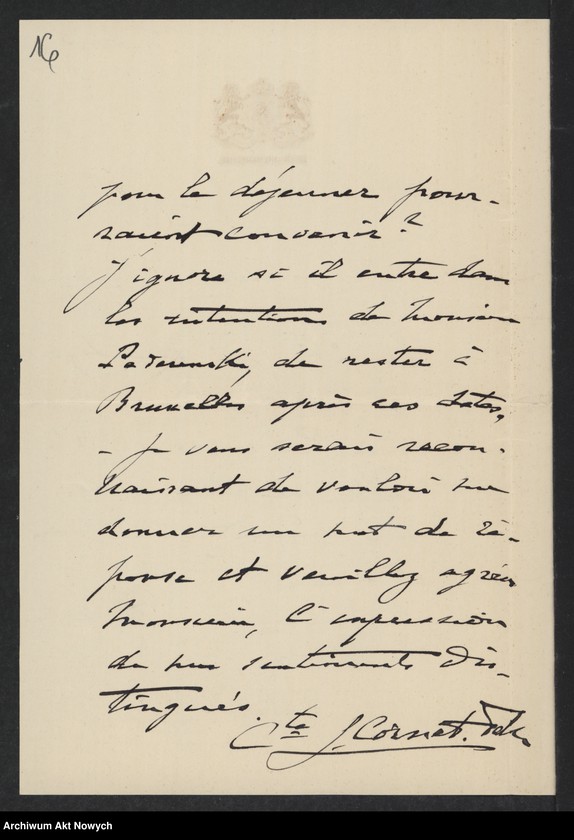 16
pour le déjeuner pour-
raient convenir?
J'ignore si il entre dans
les intentions de Monsieur
Paderewski, de rester à
Bruxelles après ces dates,
- Je vous serais recon-
naissant de vouloir me
donner un mot de ré-
ponse et veuillez agréer
Monsieur, l'expression
de mes sentiments dis-
tingués.
Cte J. Cornet.
Archiwum Akt Nowych